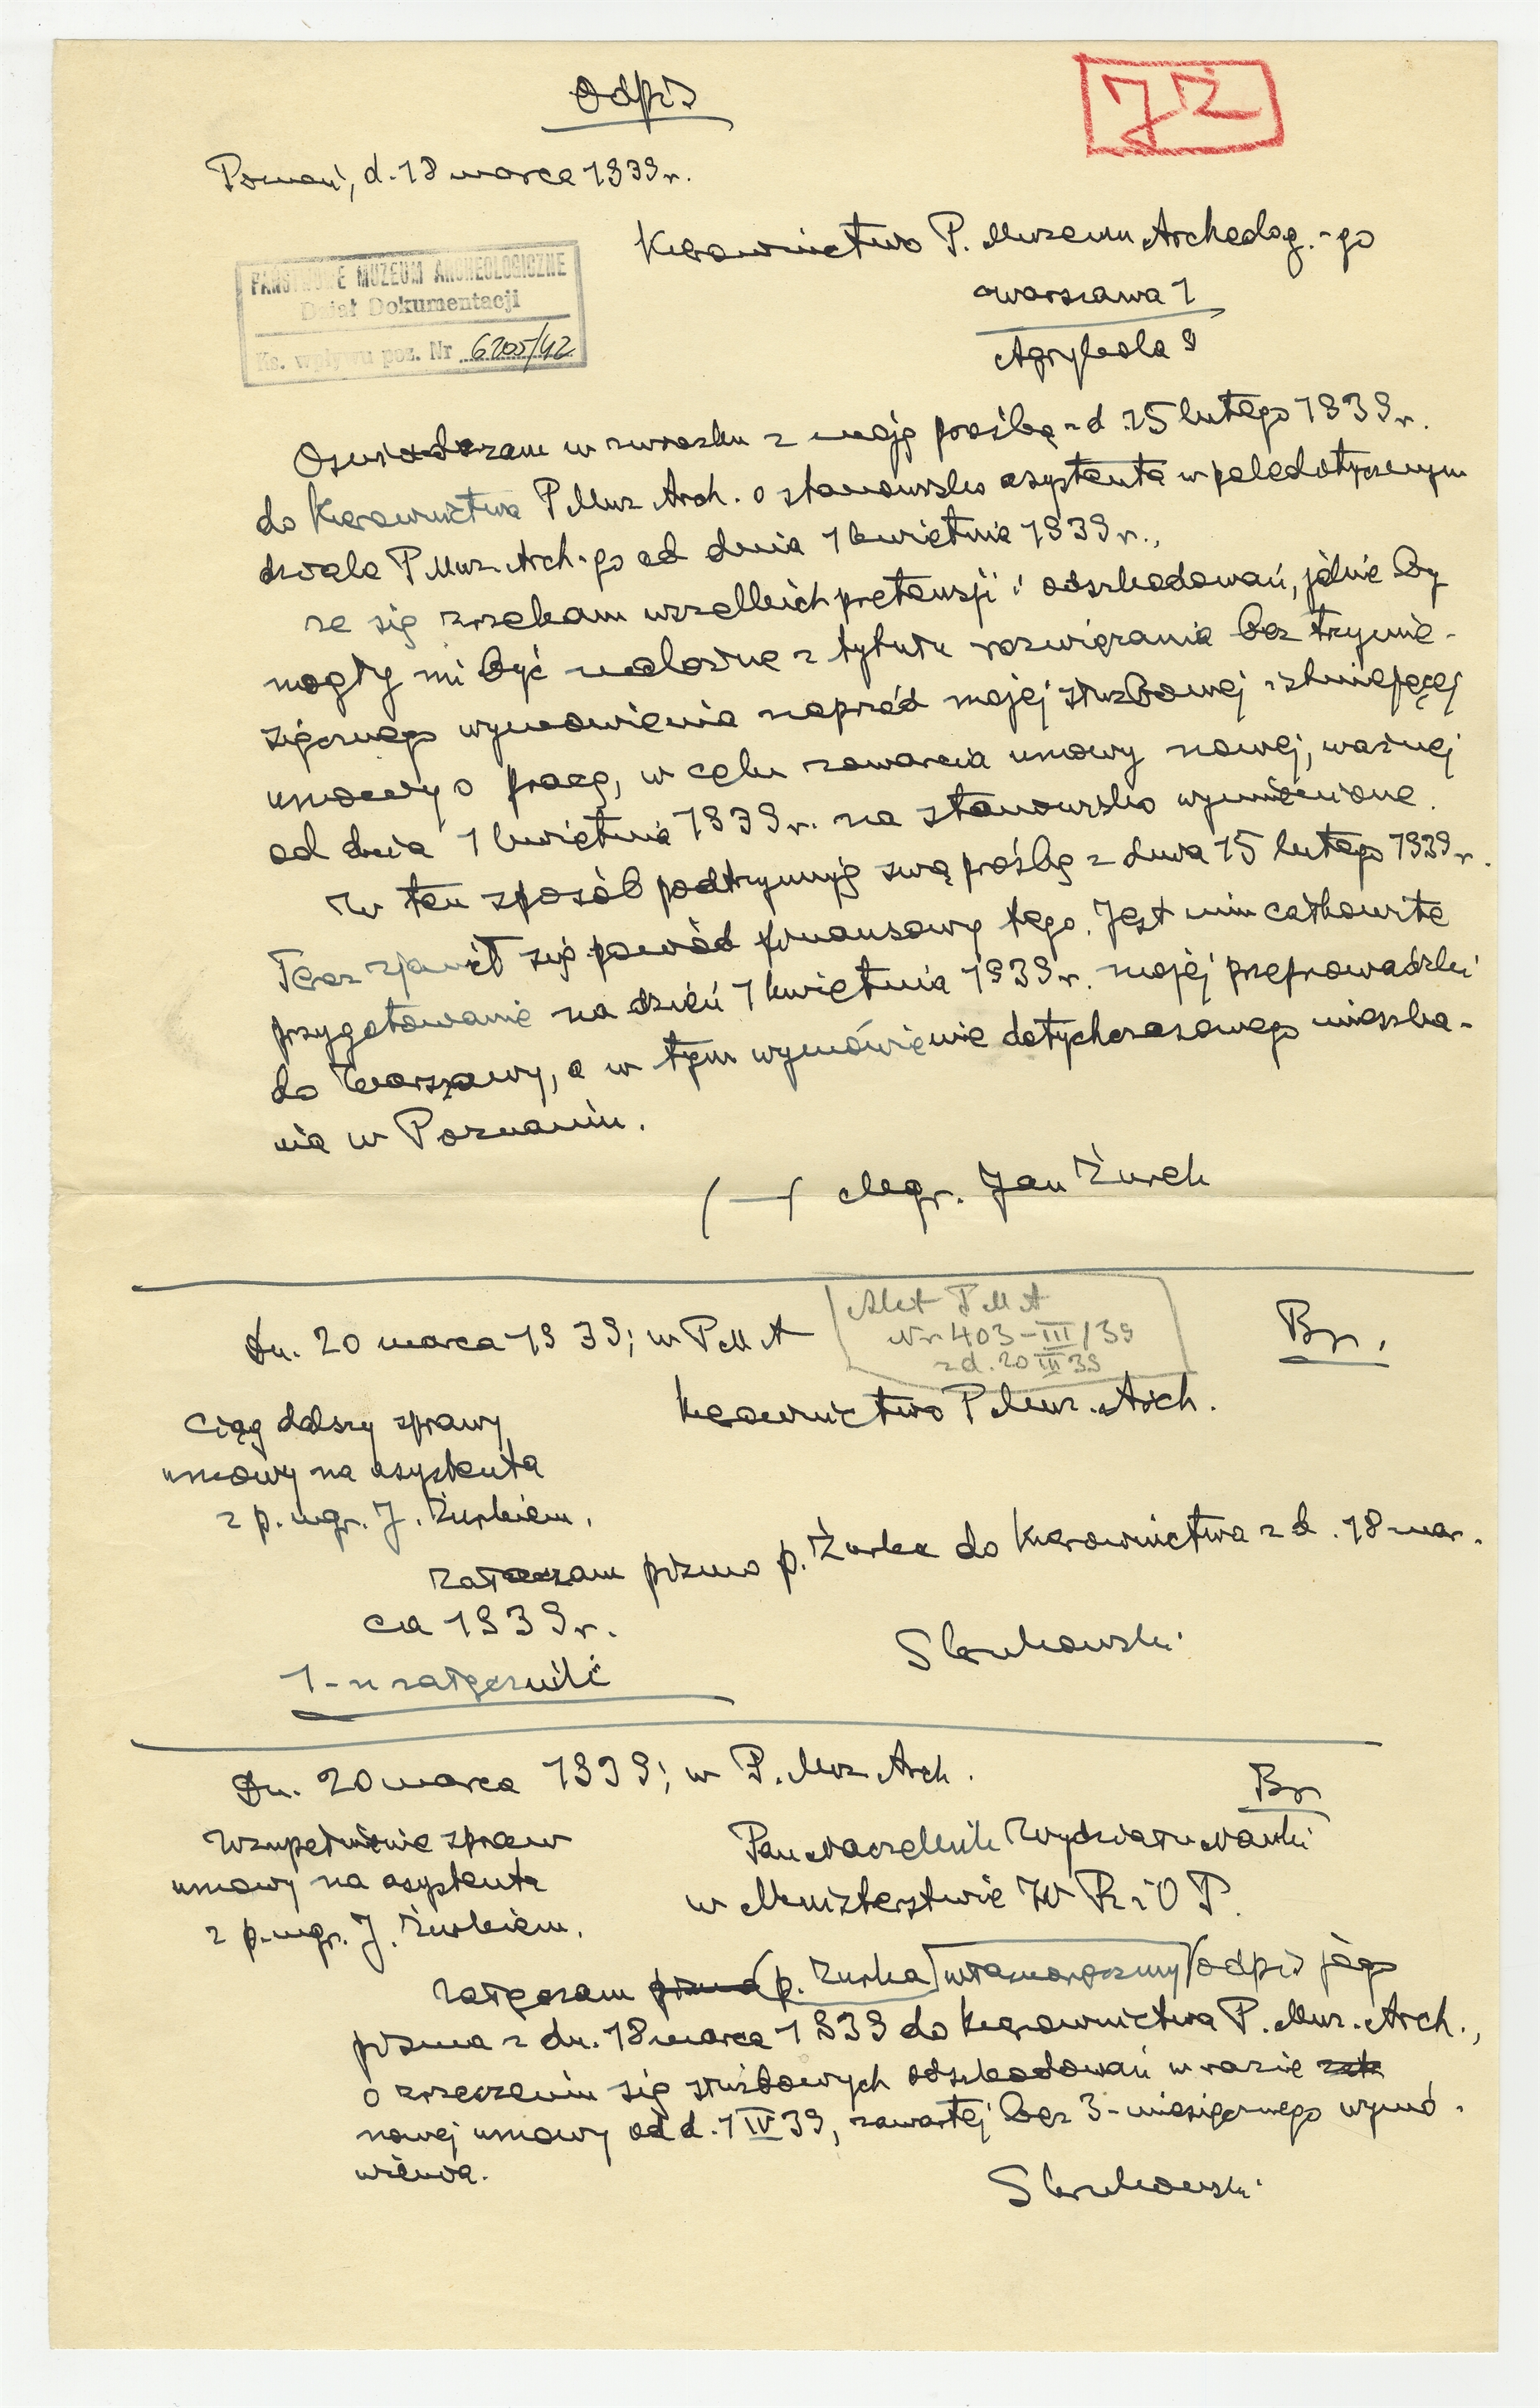 Odpis
JŻ
Poznań, d. 18 marca 1939 r.
Kierownictwo P. Muzeum Archeolog.-go
Warszawa 1
Agrykola 9
PAŃSTWOWE MUZEUM ARCHEOLOGICZNE
Dział Dokumentacji
Ks. wpływu poz. Nr 6205/42
Oświadczam w związku z moją prośbą z d. 15 lutego 1939 r.
do Kierownictwa P Muz Arch. o stanowisko asystenta w
dziale P Muz. Arch-go od dnia 1 kwietnia 1939 r.,
że się zrzekam wszelkich pretensji i odszkodowań, jakie by
mogły mi być należne z tytułu rozwiązania bez trzymie-
sięcznego wymówienia naprzód mojej służbowej istniejącej
umowy o pracę, w celu zawarcia umowy nowej, ważnej
od dnia 1 kwietnia 1939 r. na stanowisko wymienione.
W ten sposób podtrzymuję swą prośbę z dnia 15 lutego 1939 r.
Teraz zjawił się powód finansowy tego. Jest nim całkowite
przygotowanie na dzień 1 kwietnia 1939 r. mojej przeprowadzki
do Warszawy, a w tym wymówienie dotychczasowego mieszka-
nia w Poznaniu.
(—) Mgr. Jan Żurek
Dn. 20 marca 1939; w P M A
Akt P M A
Nr 403-III/39
z d. 20 III 39
Br.
Kierownictwo P Muz. Arch.
Ciąg dalszy sprawy
umowy na asystenta
z p. mgr. J. Żurkiem.
Załączam pismo p. Żurka do Kierownictwa z d. 18 mar-
ca 1939 r.
1-n załącznik
Skrukowski
Dn. 20 marca 1939; w P. Muz Arch.
Br
Wzupełnienie spraw
umowy na asystenta
z p. mgr. J. Żurkiem.
Pan Naczelnik Wydziału Nauki
w Ministerstwie W R i O P.
Załączam pismo (p. Żurka) własnoręczny odpis jego
pisma z dn. 18 marca 1939 do Kierownictwa P. Muz. Arch.,
o zrzeczeniu się służbowych odszkodowań w razie
nowej umowy od d. 1 IV 39, zawartej bez 3-miesięcznego wymó-
wienia.
Skrukowski